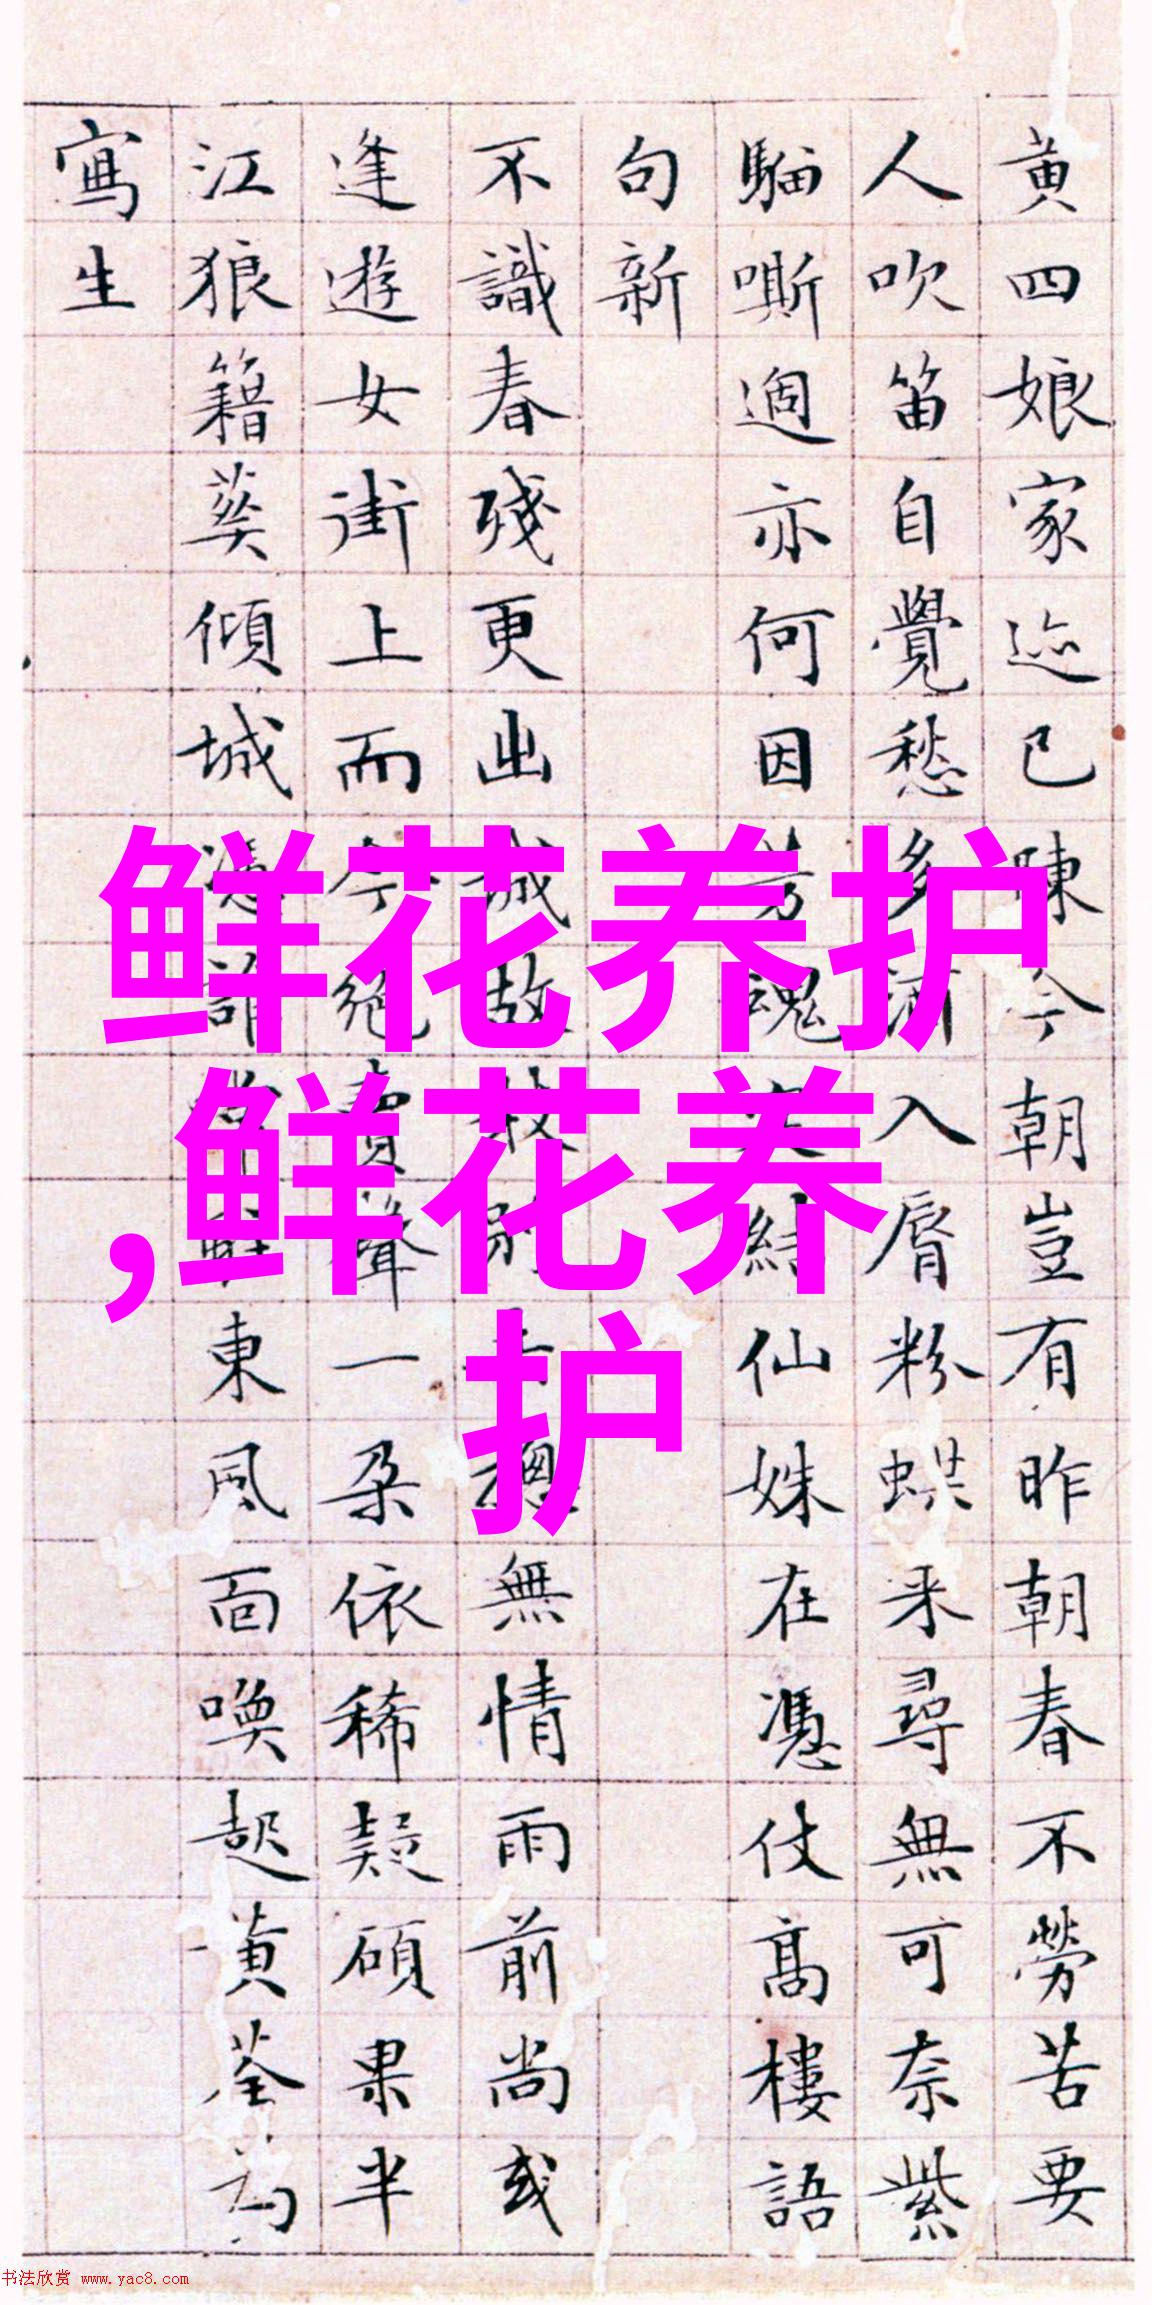 黄四娘家迹已陳今朝豈有昨朝春不勞苦要
人吹笛自覺愁多入脣粉蝶来尋無可奈紫
騮嘶過亦何因芳魂結仙姝在憑仗高樓語
句新
不識春殘更出城故枝別總無情雨前尚或
逢遊女街上而今絶賣聲一朵依稀疑碩果半
江狼籍葵傾城憑誰東風面喚起黄荃為
寫生
鲜花养护
,鲜花养
护
书法欣赏 www.yac8.com